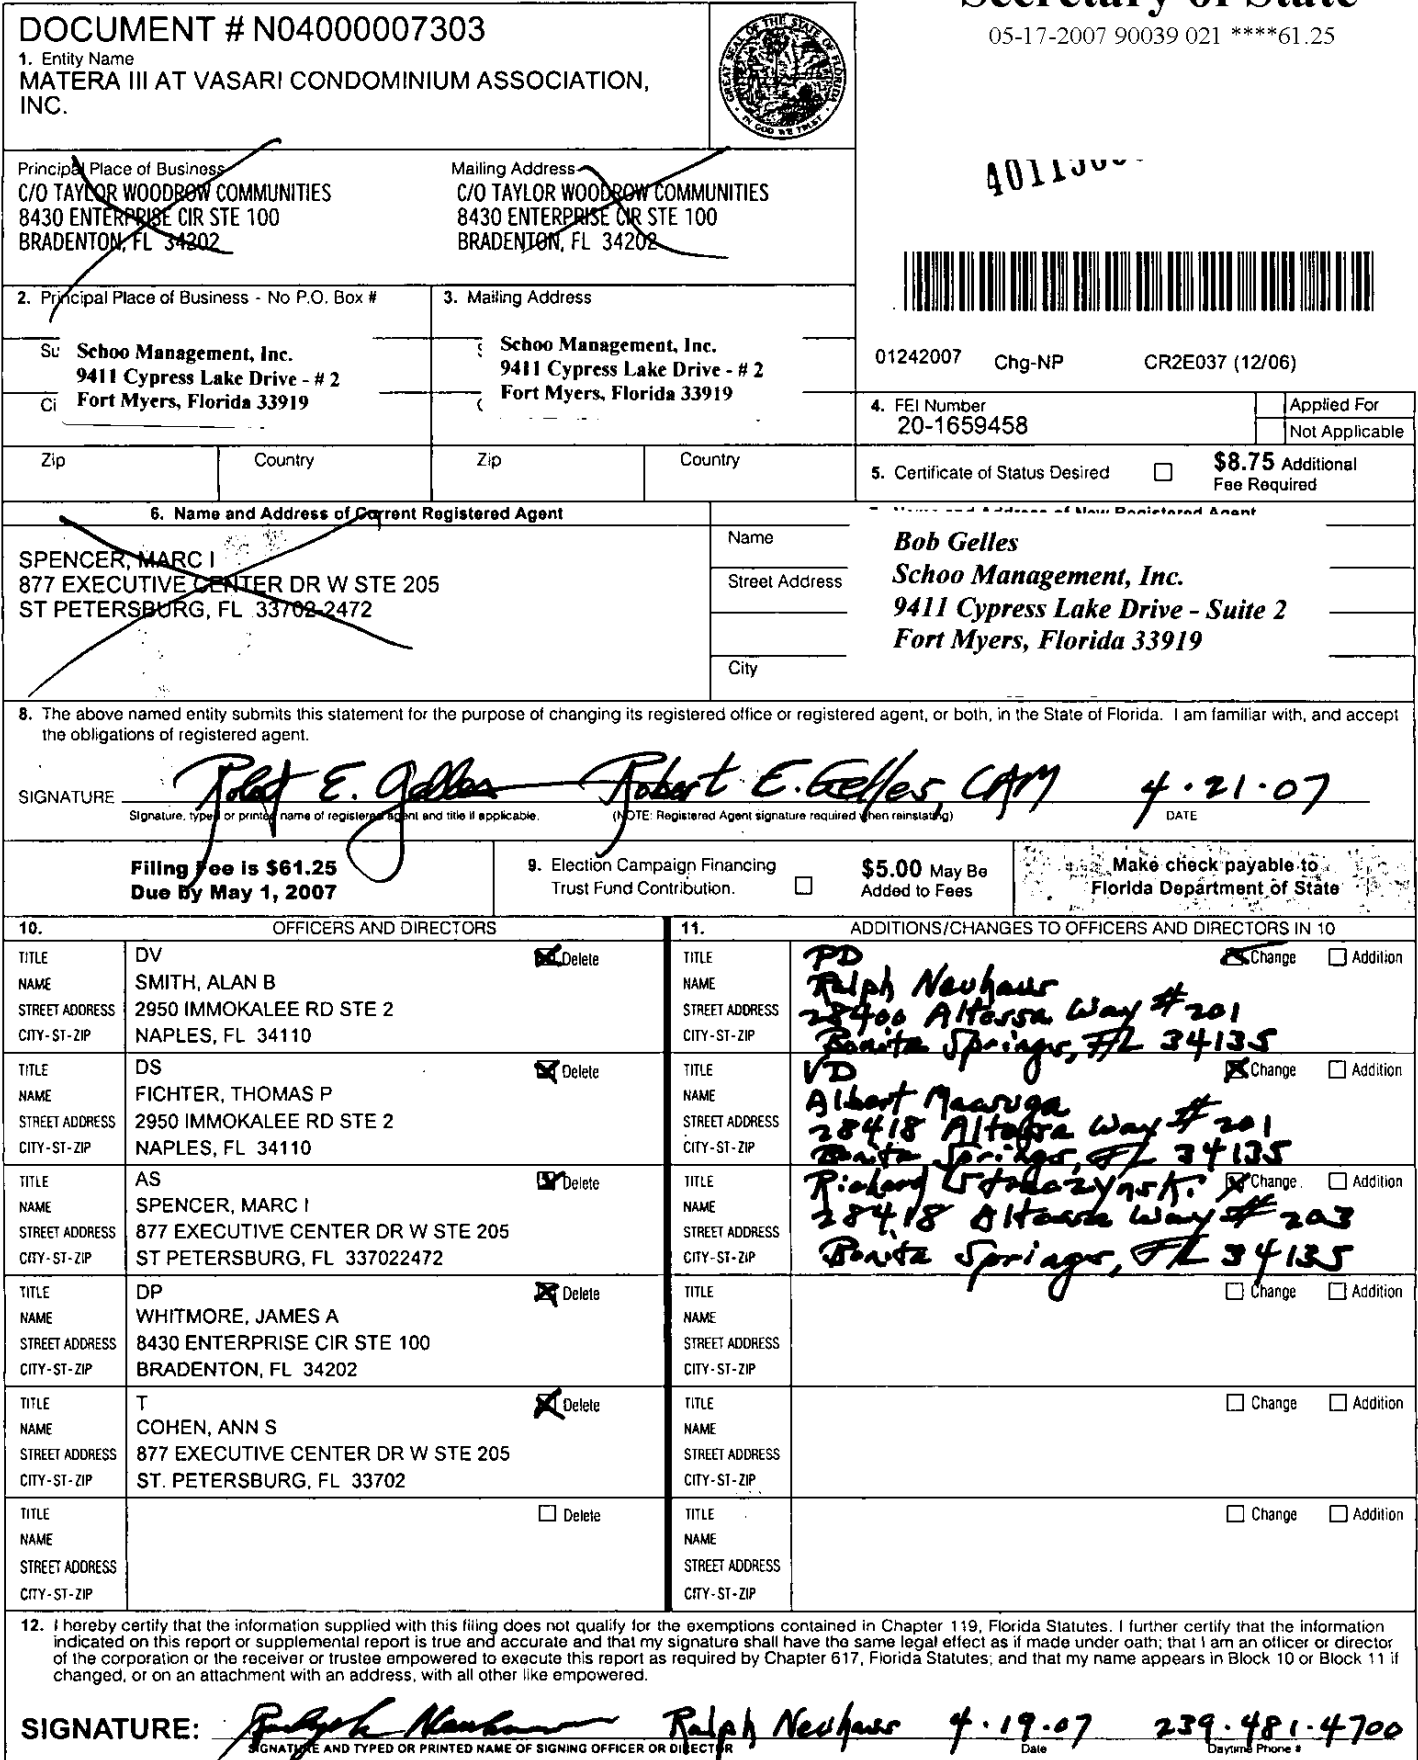 Secretary of State
05-17-2007 90039 021 ****61.25
DOCUMENT # N04000007303
1. Entity Name
MATERA III AT VASARI CONDOMINIUM ASSOCIATION,
INC.
GREAT SEAL OF THE STATE OF FLORIDA
IN GOD WE TRUST
Principal Place of Business
C/O TAYLOR WOODROW COMMUNITIES
8430 ENTERPRISE CIR STE 100
BRADENTON, FL 34202
Mailing Address
C/O TAYLOR WOODROW COMMUNITIES
8430 ENTERPRISE CIR STE 100
BRADENTON, FL 34202
2. Principal Place of Business - No P.O. Box #
Schoo Management, Inc.
9411 Cypress Lake Drive - # 2
Fort Myers, Florida 33919
3. Mailing Address
Schoo Management, Inc.
9411 Cypress Lake Drive - # 2
Fort Myers, Florida 33919
Zip Country Zip Country
01242007 Chg-NP CR2E037 (12/06)
4. FEI Number
20-1659458
Applied For
Not Applicable
5. Certificate of Status Desired $8.75 Additional
Fee Required
6. Name and Address of Current Registered Agent
SPENCER, MARC I
877 EXECUTIVE CENTER DR W STE 205
ST PETERSBURG, FL 33702-2472
7. Name and Address of New Registered Agent
Name
Street Address
City
Bob Gelles
Schoo Management, Inc.
9411 Cypress Lake Drive - Suite 2
Fort Myers, Florida 33919
8. The above named entity submits this statement for the purpose of changing its registered office or registered agent, or both, in the State of Florida. I am familiar with, and accept
the obligations of registered agent.
SIGNATURE Robert E. Gelles Robert E. Gelles, CAM 4.21.07
Signature, typed or printed name of registered agent and title if applicable. (NOTE: Registered Agent signature required when reinstating) DATE
Filing Fee is $61.25
Due by May 1, 2007
9. Election Campaign Financing
Trust Fund Contribution.
$5.00 May Be
Added to Fees
Make check payable to
Florida Department of State
10. OFFICERS AND DIRECTORS
TITLE DV Delete
NAME SMITH, ALAN B
STREET ADDRESS 2950 IMMOKALEE RD STE 2
CITY-ST-ZIP NAPLES, FL 34110
TITLE DS Delete
NAME FICHTER, THOMAS P
STREET ADDRESS 2950 IMMOKALEE RD STE 2
CITY-ST-ZIP NAPLES, FL 34110
TITLE AS Delete
NAME SPENCER, MARC I
STREET ADDRESS 877 EXECUTIVE CENTER DR W STE 205
CITY-ST-ZIP ST PETERSBURG, FL 337022472
TITLE DP Delete
NAME WHITMORE, JAMES A
STREET ADDRESS 8430 ENTERPRISE CIR STE 100
CITY-ST-ZIP BRADENTON, FL 34202
TITLE T Delete
NAME COHEN, ANN S
STREET ADDRESS 877 EXECUTIVE CENTER DR W STE 205
CITY-ST-ZIP ST. PETERSBURG, FL 33702
TITLE Delete
NAME
STREET ADDRESS
CITY-ST-ZIP
11. ADDITIONS/CHANGES TO OFFICERS AND DIRECTORS IN 10
TITLE PD Change Addition
NAME Ralph Neuhaus
STREET ADDRESS 28400 Way # 201
CITY-ST-ZIP Bonita Springs, FL 34135
TITLE VD Change Addition
NAME Albert
STREET ADDRESS 28418 Way # 201
CITY-ST-ZIP Bonita Springs, FL 34135
TITLE Richard Change Addition
NAME 28418 Way # 203
STREET ADDRESS Bonita Springs, FL 34135
CITY-ST-ZIP
TITLE Change Addition
NAME
STREET ADDRESS
CITY-ST-ZIP
TITLE Change Addition
NAME
STREET ADDRESS
CITY-ST-ZIP
TITLE Change Addition
NAME
STREET ADDRESS
CITY-ST-ZIP
12. I hereby certify that the information supplied with this filing does not qualify for the exemptions contained in Chapter 119, Florida Statutes. I further certify that the information
indicated on this report or supplemental report is true and accurate and that my signature shall have the same legal effect as if made under oath; that I am an officer or director
of the corporation or the receiver or trustee empowered to execute this report as required by Chapter 617, Florida Statutes; and that my name appears in Block 10 or Block 11 if
changed, or on an attachment with an address, with all other like empowered.
SIGNATURE: Ralph Neuhaus Ralph Neuhaus 4.19.07 239.481.4700
SIGNATURE AND TYPED OR PRINTED NAME OF SIGNING OFFICER OR DIRECTOR Date Daytime Phone #